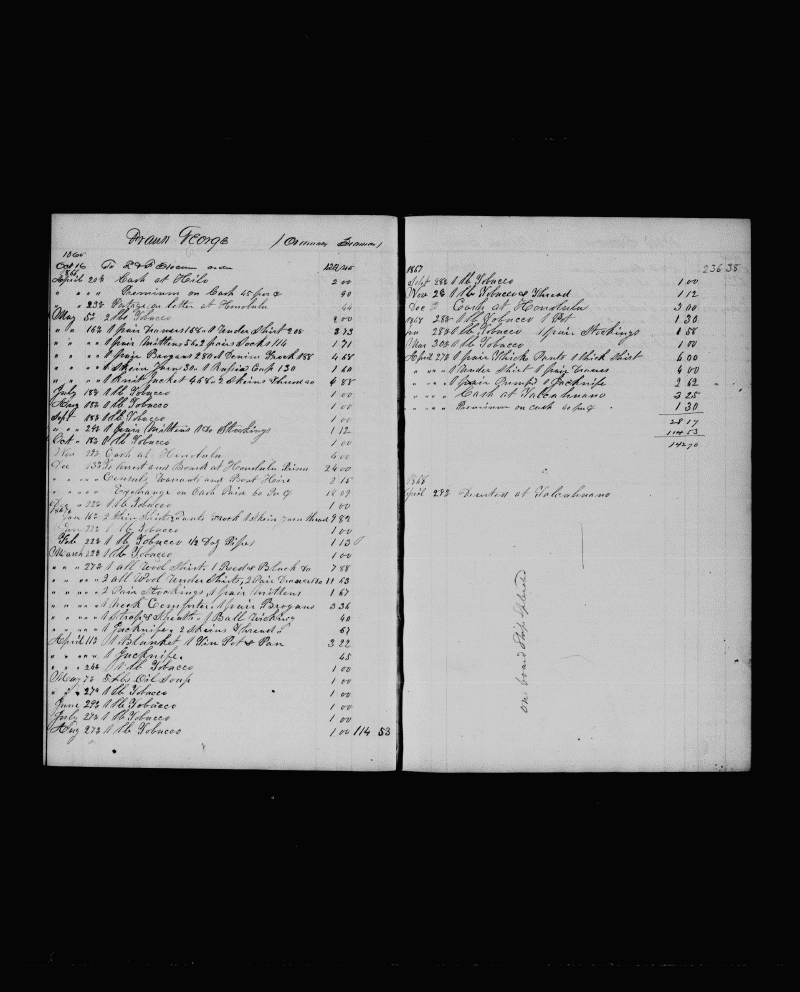 George
Oct 16 To
April 20th Cash at Hilo 2 00
" " " Premium on Cash 45 per ct 90
" 23d Postage on letter at Honolulu 44
May 5th 2 lb Tobacco 2 00
" " 16th 1 pair Trowsers 1 Under Shirt 3 73
" " " " 1 pair Mittens 56c 2 pairs Socks 114 1 71
" " " " 1 pair Brogans 280 1 Denim Frock 188 4 68
" " " " 1 Skein Yarn 30c 1 Russia Cap 130 1 60
" " " " 1 Knit Jacket 468c 2 Skeins Thread 20 4 88
July 18th 1 lb Tobacco 1 00
Aug 18th 1 lb Tobacco 1 00
Sept 18th 1 lb Tobacco 1 00
" " 29th 1 pair Mittens 1 Do Stockings 1 12
Oct 18th 1 lb Tobacco 1 00
Nov Cash at Honolulu 6 00
Dec 13th and Board at Honolulu Prison 24 00
" " " " Consuls, Warrants and Boat Hire 2 15
" " " " Exchange on Cash Paid 60 Pr ct
Dec 22d 1 lb Tobacco 1 00
Jan 16th 2 Shirts, Pants Frock 1 Skein Yarn thread
Jan 1 lb Tobacco 1 00
Feb 22d 1 lb Tobacco 1/2 Doz Pipes 1 13
March 22d 1 lb Tobacco 1 00
" " " 27th 1 all Wool Shirt, 7 88
" " " " 2 all Wool Under Shirts, 2 Pair 11 63
" " " " 2 Pair Stockings, 1 pair Mittens 1 67
" " " " 1 Neck Comforter, 1 pair Brogans 3 36
" " " " 1 Strap & Sheath, 1 Ball Wicking 40
" " " " 1 Jacknife, 2 Skeins Thread
April 11th 1 Blanket 1 Tin Pot & Pan 3 22
" " " " 1 Jacknife. 45
" " " 1 lb Tobacco 1 00
May 7th 5 lbs Oil Soap 1 00
" " 27th 1 lb Tobacco 1 00
June 29th 1 lb Tobacco 1 00
July 27th 1 lb Tobacco 1 00
Aug 27th 1 lb Tobacco 1 00 114 53
1867 236 38
Sept 28th 1 lb Tobacco 1 00
Nov 2d 1 lb Tobacco & Thread 1 12
Dec Cash at Honolulu 3 00
1868 28th 1 lb Tobacco 1 Pot 1 30
28th 1 lb Tobacco 1 pair Stockings 1 58
Mar 30th 1 lb Tobacco 1 00
April 27th 1 pair Thick Pants 1 thick Shirt 6 00
" " " " 1 Under Shirt 1 pair 4 00
" " " " 1 pair 1 Jacknife 2 62
" " " " Cash at Talcahuano 3 25
" " " " Premium on Cash 40 pr ct 1 30
28 17
114 53
142 70
1868
April 29th Deserted at Talcahuano
on board Ship